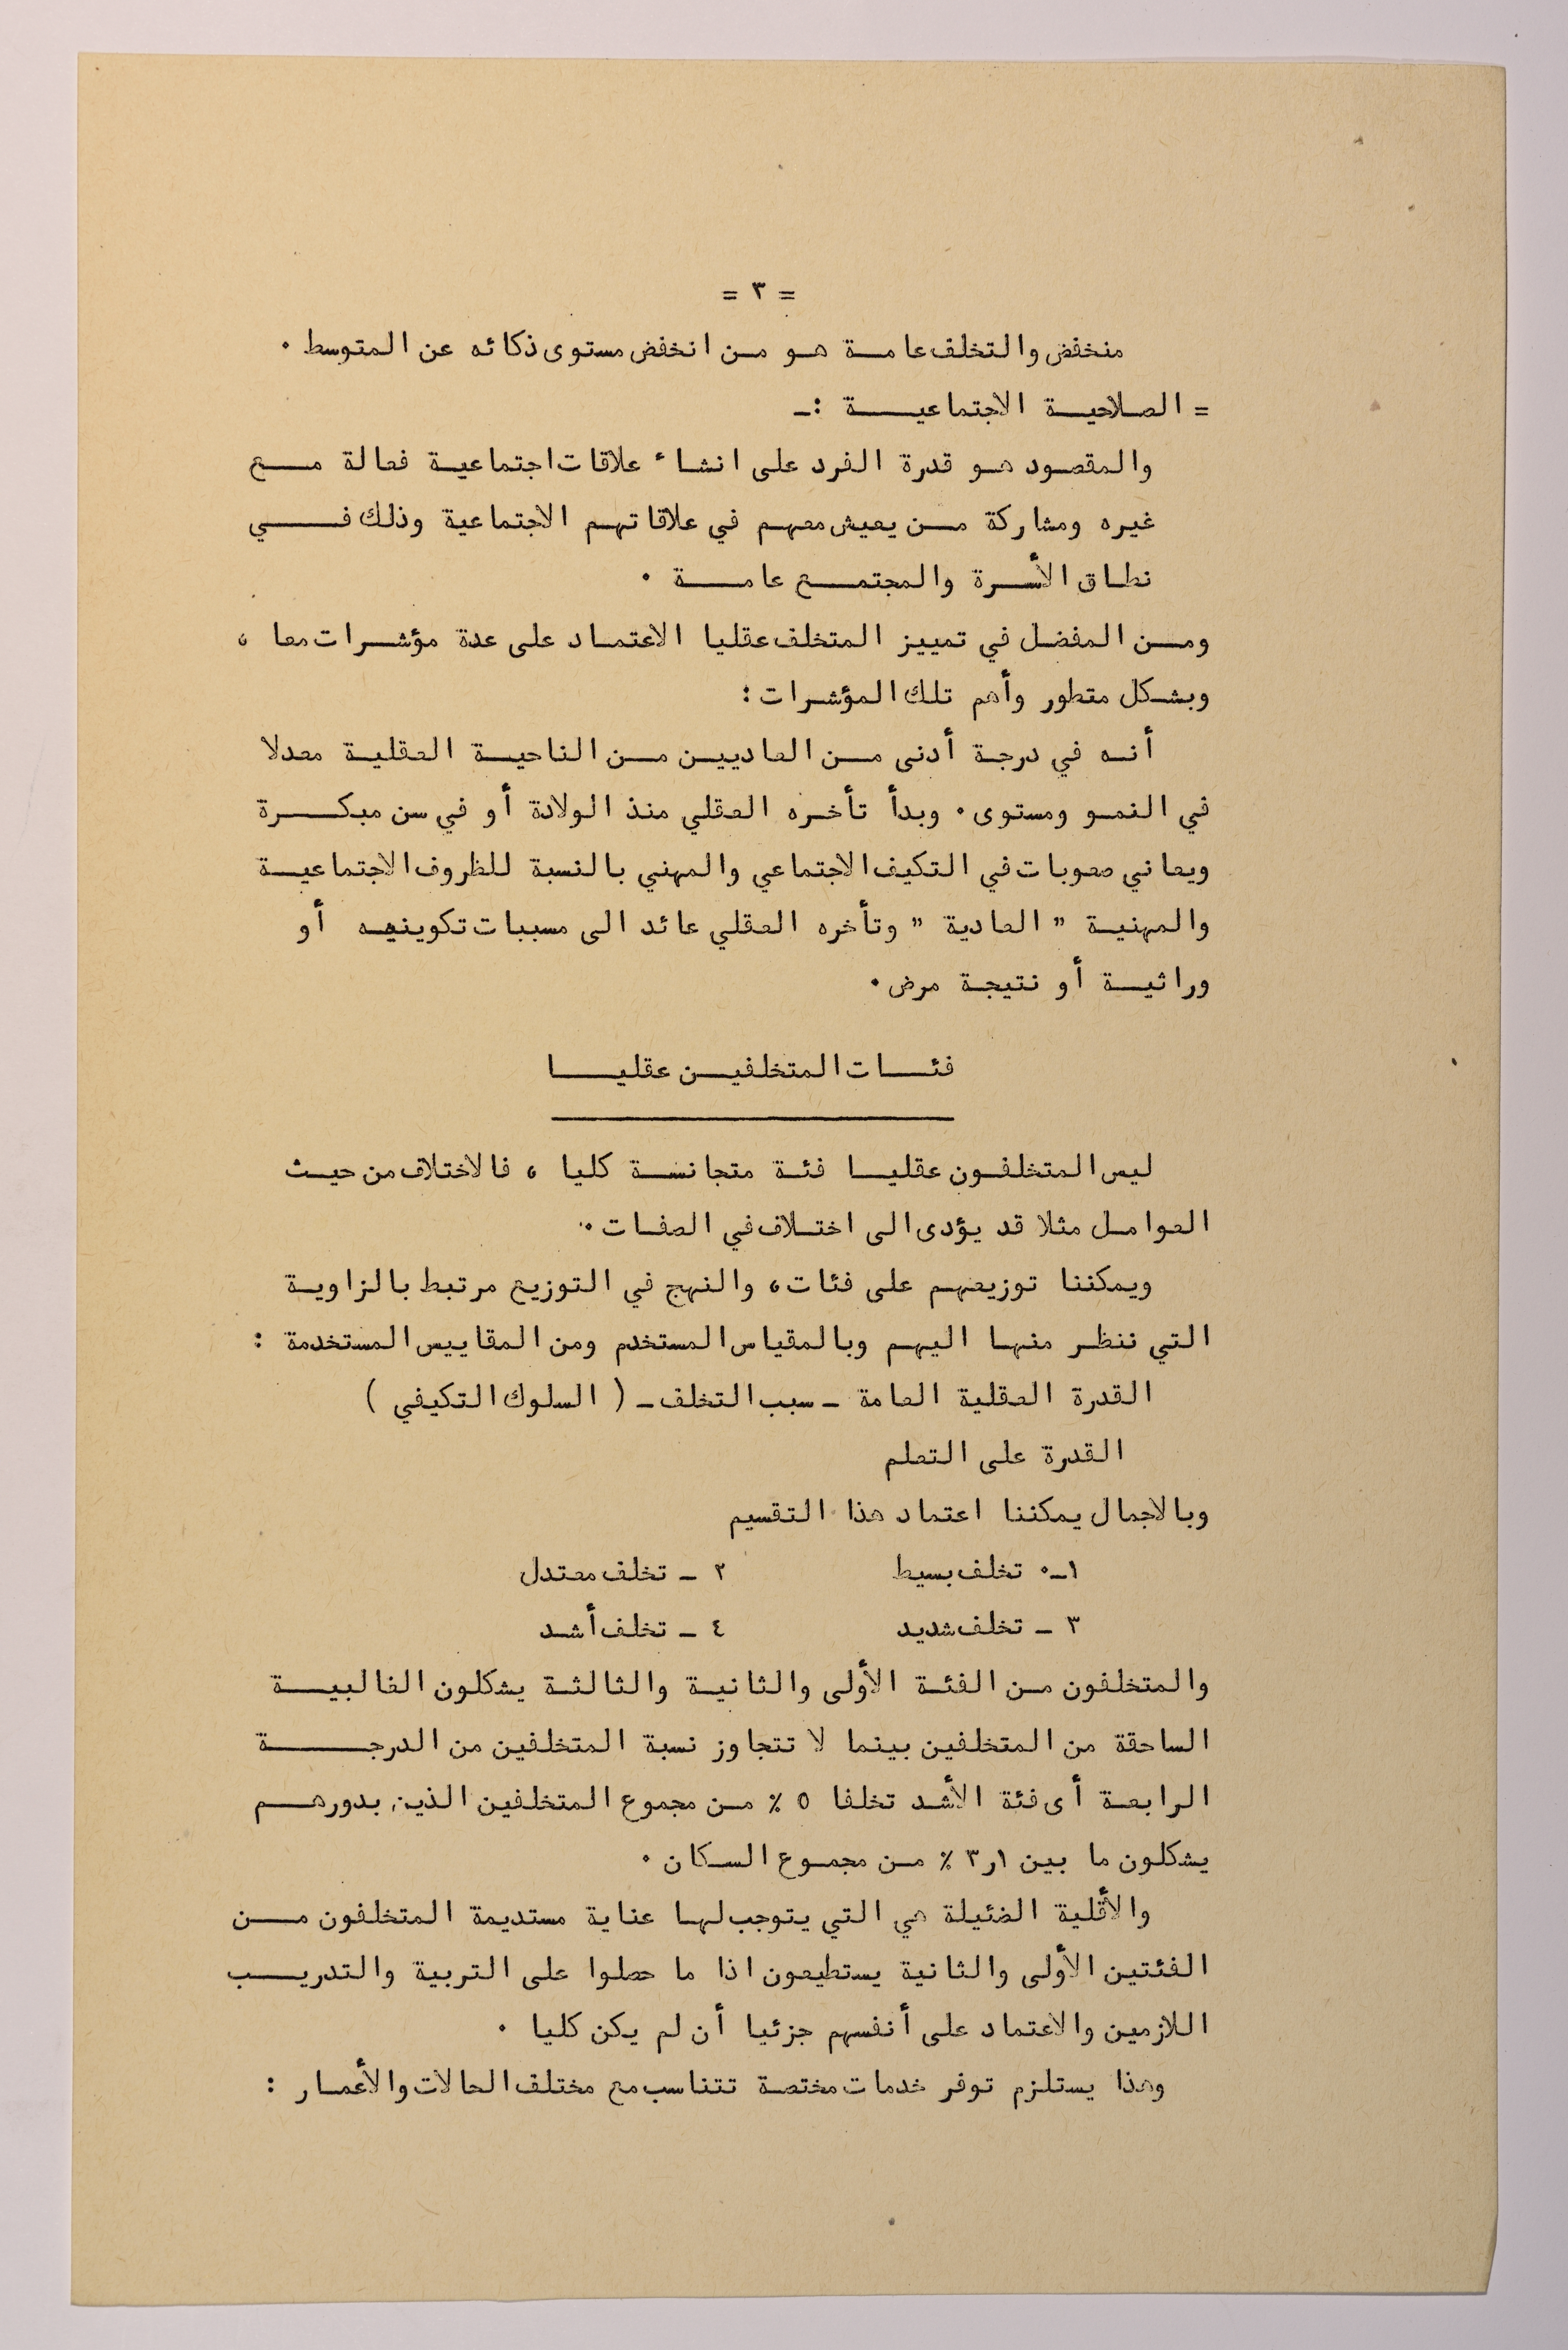 = ٣ =
منخفض والتخلف عامة هو من انخفض مستوى ذكائه عن المتوسط .
= الصلاحية الاجتماعية :ـ
والمقصود هو قدرة الفرد على انشاء علاقات اجتماعية فعالة مع
غيره ومشاركة من يعيش معهم في علاقاتهم الاجتماعية وذلك في
نطاق الأسرة والمجتمع عامة .
ومن المفضل في تمييز المتخلف عقليا الاعتماد على عدة مؤشرات معا ،
وبشكل متطور وأهم تلك المؤشرات :
أنه في درجة أدنى من العاديين من الناحية العقلية معدلا
في النمو ومستوى . وبدأ تأخره العقلي منذ الولادة أو في سن مبكرة
ويعاني صعوبات في التكيف الاجتماعي والمهني بالنسبة للظروف الاجتماعية
والمهنية " العادية " وتأخره العقلي عائد الى مسببات تكوينيه أو
وراثية أو نتيجة مرض .
فئات المتخلفين عقليا
ليس المتخلفون عقليا فئة متجانسة كليا ، فالاختلاف من حيث
العوامل مثلا قد يؤدى الى اختلاف في الصفات .
ويمكننا توزيعهم على فئات ، والنهج في التوزيع مرتبط بالزاوية
التي ننظر منها اليهم وبالمقياس المستخدم ومن المقاييس المستخدمة :
القدرة العقلية العامة ـ سبب التخلف ـ ( السلوك التكيفي )
القدرة على التعلم
وبالاجمال يمكننا اعتماد هذا التقسيم
١ـ. تخلف بسيط ٢ ـ تخلف معتدل
٣ ـ تخلف شديد ٤ ـ تخلف أشد
والمتخلفون من الفئة الأولى والثانية والثالثة يشكلون الغالبية
الساحقة من المتخلفين بينما لا تتجاوز نسبة المتخلفين من الدرجة
الرابعة أى فئة الأشد تخلفا ٥ ٪ من مجموع المتخلفين الذين بدورهم
يشكلون ما بين ١ر٣ ٪ من مجموع السكان .
والأقلية الضئيلة هي التي يتوجب لها عناية مستديمة المتخلفون من
الفئتين الأولى والثانية يستطيعون اذا ما حصلوا على التربية والتدريب
اللازمين والاعتماد على أنفسهم جزئيا أن لم يكن كليا .
وهذا يستلزم توفر خدمات مختصة تتناسب مع مختلف الحالات والأعمار :